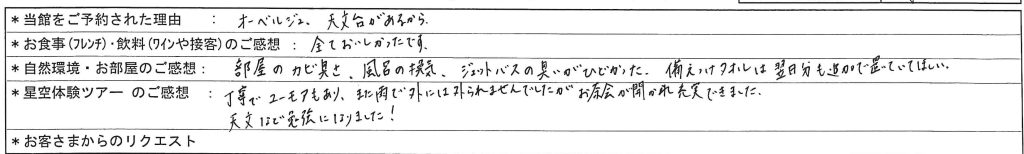 *当館をご予約された理由 ： オーベルジュ、天文台があるから.
*お食事(フレンチ)・飲料(ワインや接客)のご感想 ： 全ておいしかったです.
*自然環境・お部屋のご感想： 部屋のカビ臭さ、風呂の換気、ジェットバスの臭いがひどかった. 備えつけタオルは翌日分も追加で置いていてほしい.
*星空体験ツアー のご感想 ： 丁寧でユーモアもあり、また雨で外には出られませんでしたがお茶会が開かれ充実できました.
天文はで勉強になりました！
*お客さまからのリクエスト